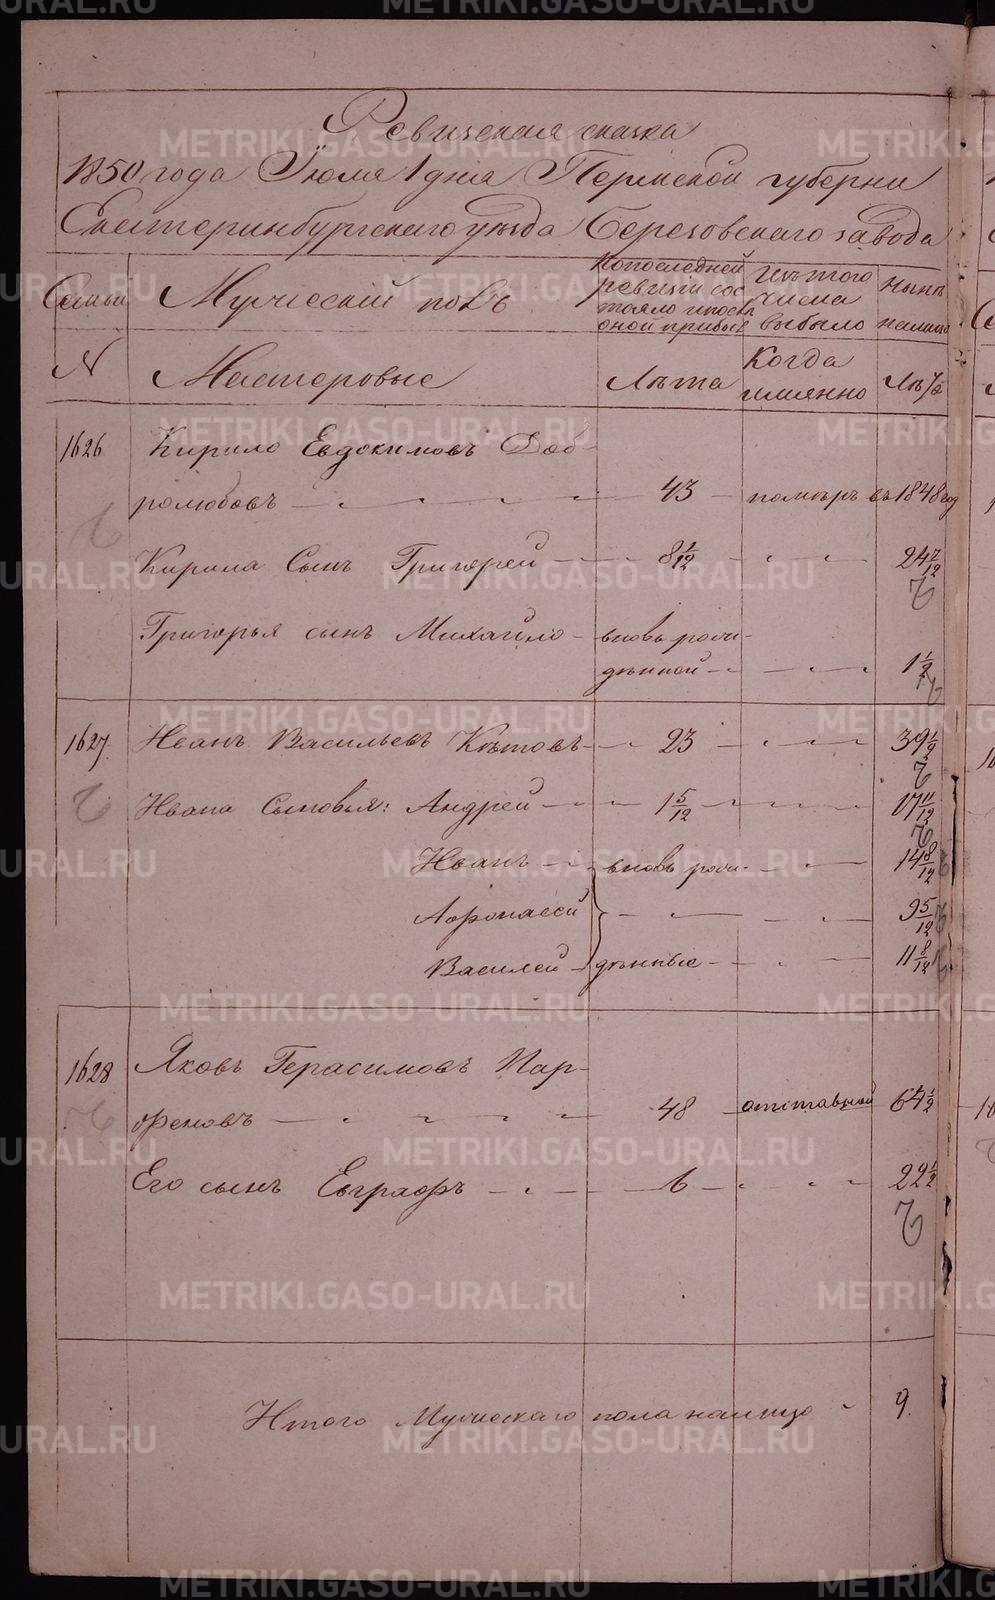 Ревизская сказка
1850 года Июля 1 дня Пермской губерни
Екатеринбургского уезда Березовскаго завода
Семьи Мужеский полъ По последней ревизги состояло и после оной прибыло Изъ того числа выбыло Ныне налицо
N Мастеровые Лѣта Когда имянно Лѣта
1626 Кирило Евдокимовъ Доб-
ролюбовъ 43 помѣръ въ 1848 год
Кирила Сынъ Григорей 8 1/12 24 7/12
Григорья сынъ Михайло вновь рожи-
дѣнной 1 1/2
1627 Иванъ Васильевъ Кѣтовъ 23 39 1/2
Ивана Сыновья: Андрей 1 5/12 17 11/12
Иванъ вновь рожи- 14 8/12
Афонасей 9 5/12
Василей дѣнные 11 8/12
1628 Яковъ Герасимовъ Пар-
феновъ 48 отставной 64 1/2
Его сынъ Евграфъ 6 22 1/2
Итого Мужескаго пола налицо 9.
METRIKI.GASO-URAL.RU